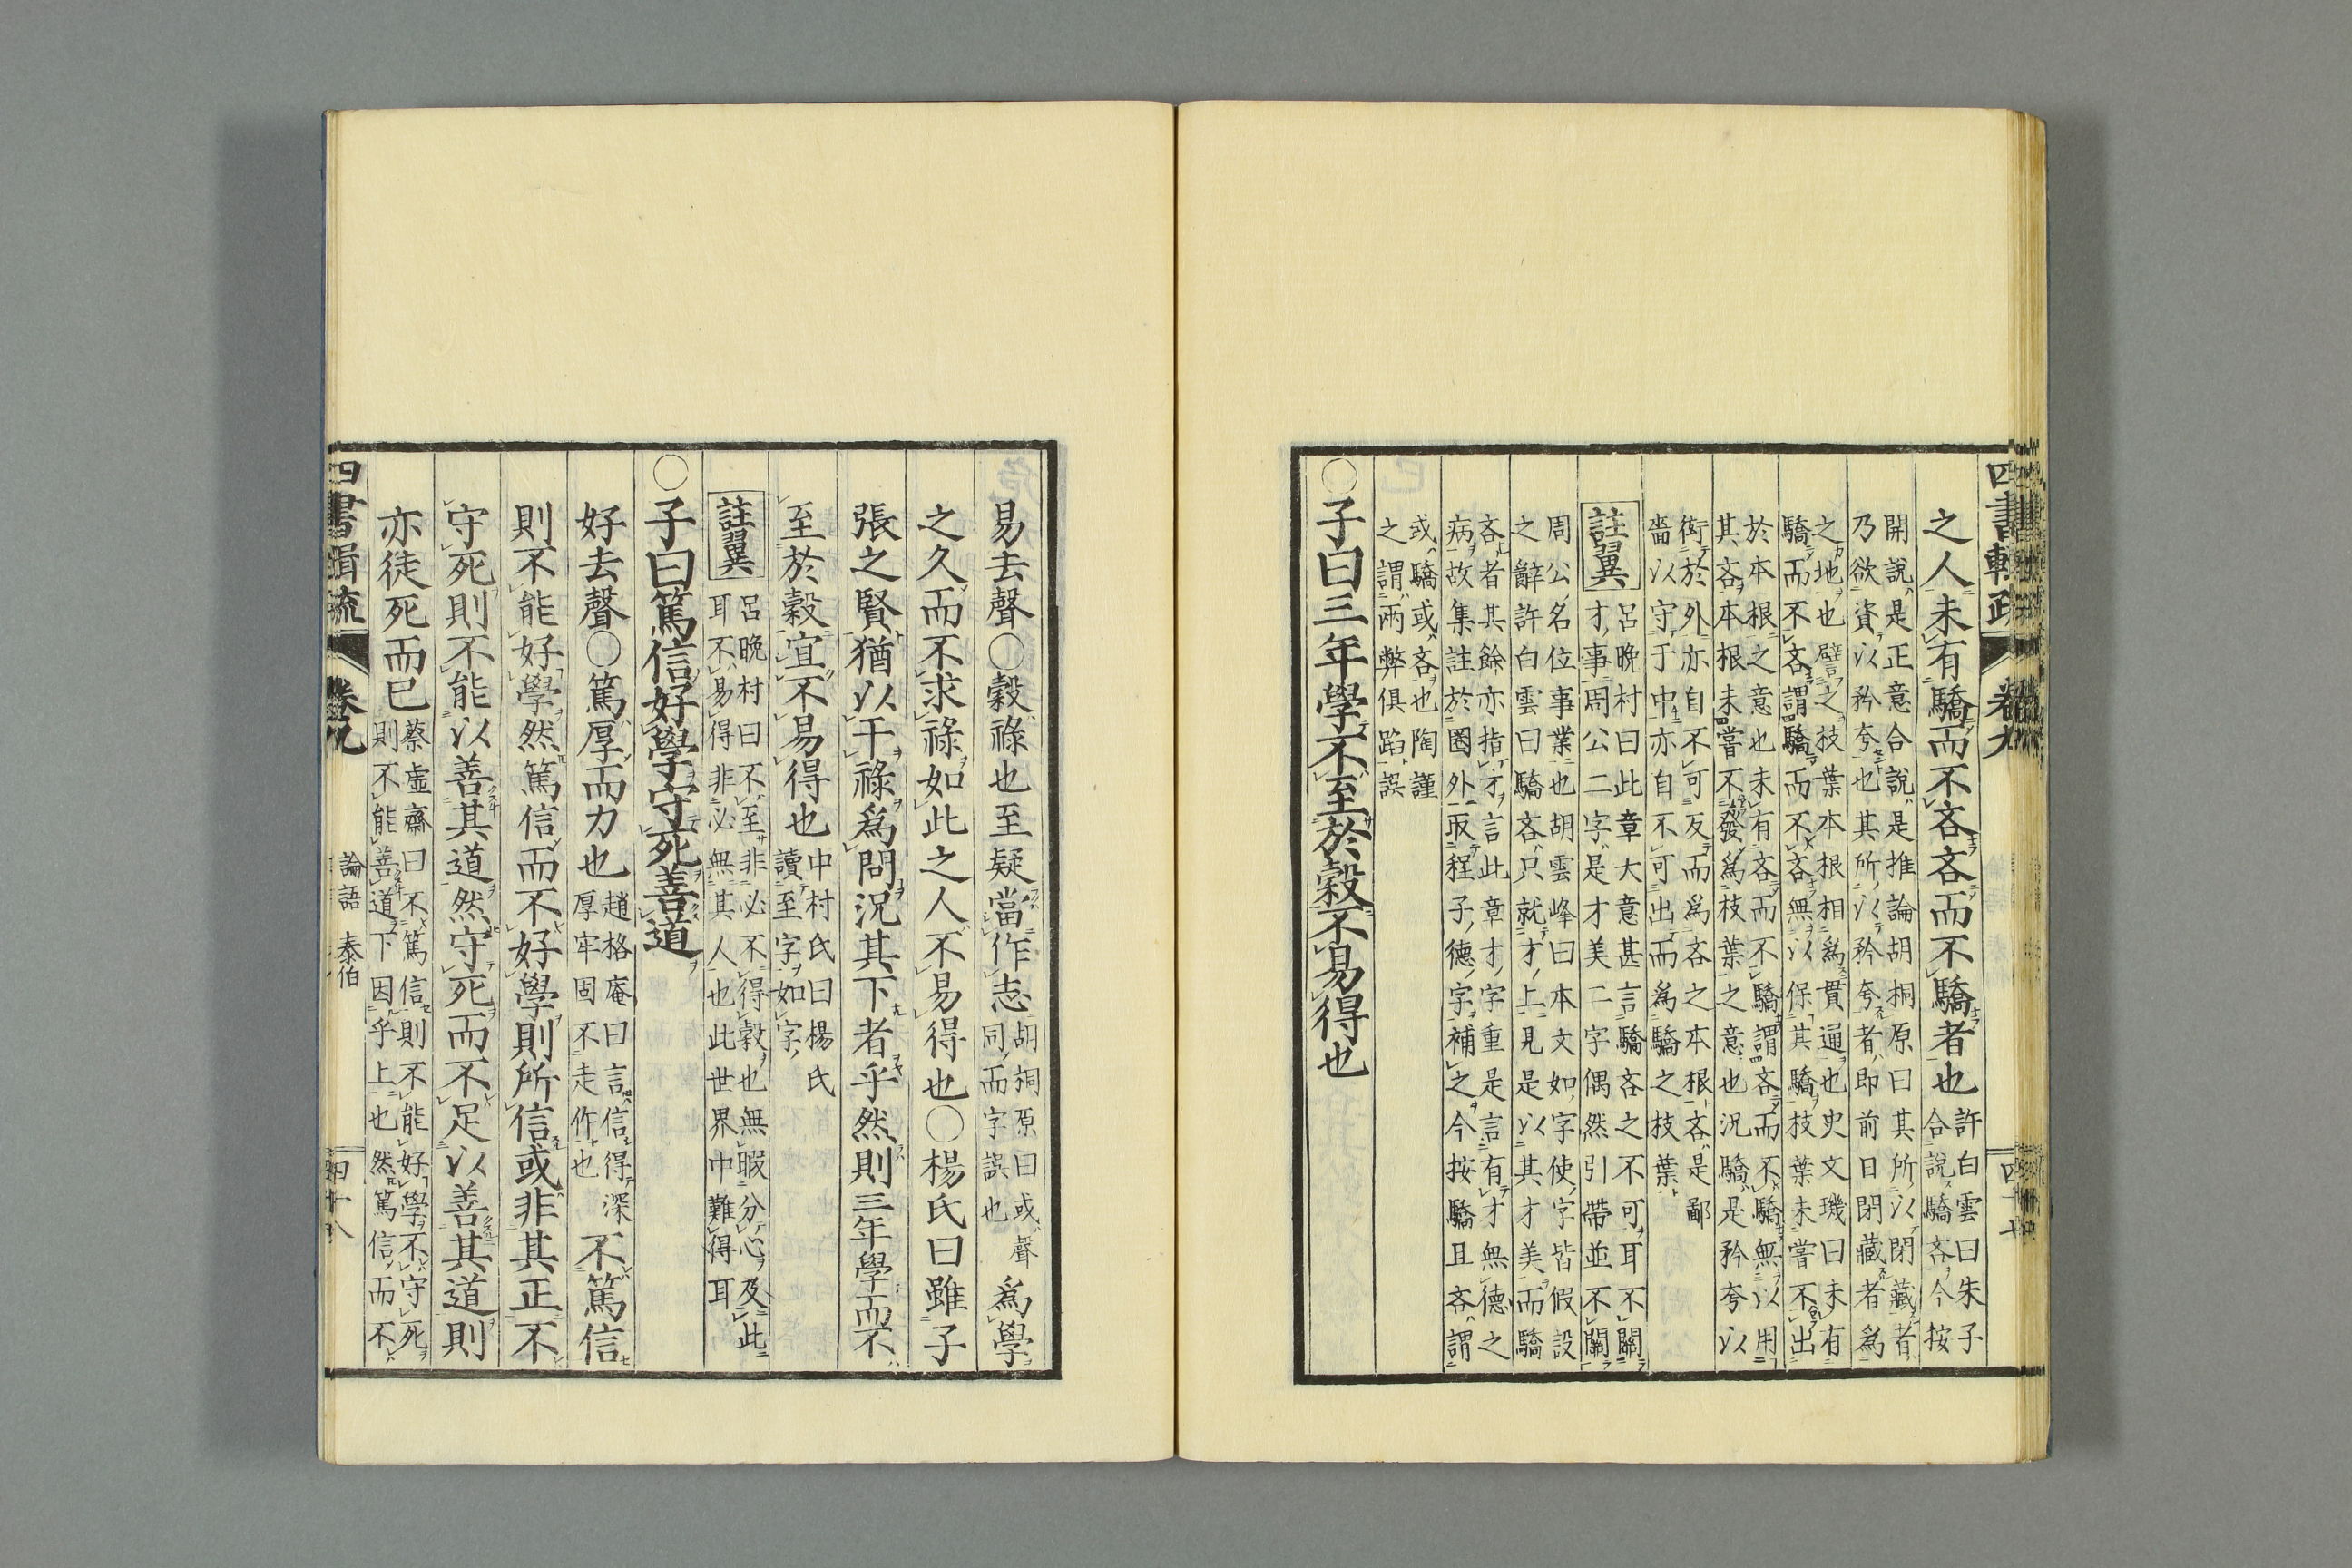 四書輯疏 卷九 四十七
之人未有驕而不吝吝而不驕者也
許白雲曰朱子
合說驕吝今按
開說是正意合說是推論胡桐原曰其所以閉藏者
乃欲資以矜夸也其所以矜夸者即前日閉藏者爲
之地也譬之技葉本根相爲貫通也史文璣曰未有
驕而不吝謂驕而不吝無以保其驕枝葉未嘗不出
於本根之意也未有吝而不驕謂吝而不驕無以用
其吝本根未嘗不發爲枝葉之意也況驕是矜夸以
衒於外亦自不可反而爲吝之本根吝是鄙
嗇以守于中亦自不可出而爲驕之枝葉
註翼
呂晩村曰此章大意甚言驕吝之不可耳不關
才事周公二字是才美二字偶然引帶並不關
周公名位事業也胡雲峰曰本文如字使字皆假設
之辭許白雲曰驕吝只就才上見是以其才美而驕
吝者其餘亦指才言此章才字重是言有才無德之
病故集註於圈外取程子德字補之今按驕且吝謂
或驕或吝也陶謹
之謂兩弊俱蹈誤
○子曰三年學不至於穀不易得也
易去聲○穀祿也至疑當作志
胡桐原曰或聲
同而字誤也
爲學
之久而不求祿如此之人不易得也○楊氏曰雖子
張之賢猶以干祿爲問況其下者乎然則三年學而不
至於穀宜不易得也
中村氏曰楊氏
讀至字如字
註翼
呂晩村曰不至非必不得穀也無暇分心及此
耳不易得非必無其人也此世界中難得耳
○子曰篤信好學守死善道
好去聲○篤厚而力也
趙格庵曰言信得深
厚牢固不走作也
不篤信
則不能好學然篤信而不好學則所信或非其正不
守死則不能以善其道然守死而不足以善其道則
亦徒死而已
蔡虛齋曰不篤信則不能好學不守死
則不能善道下因乎上也然篤信而不
四書輯疏 卷九 論語 泰伯 四十八